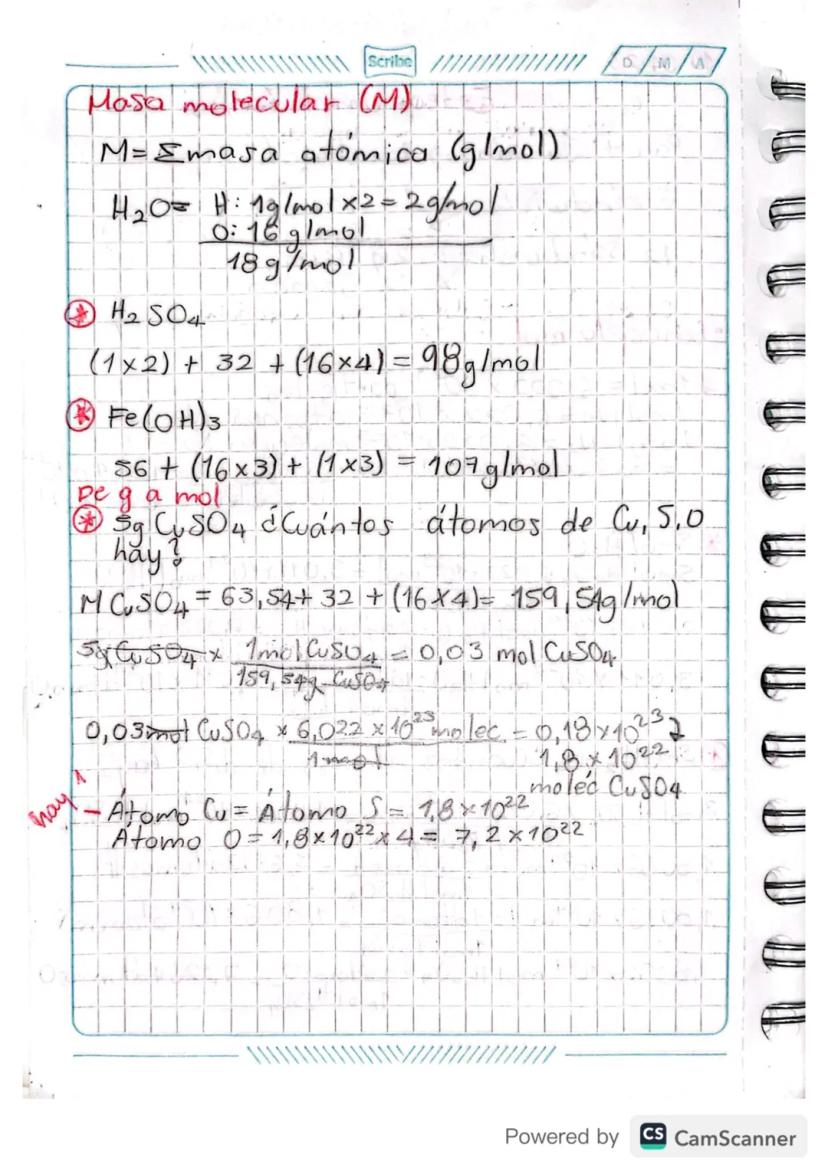 Scribe
D M A
Masa molecular (M)
M= Σmasa atómica (g/mol)
H₂O= H: 1g/mol x2 = 2g/mol
O: 16 g/mol
18 g/mol
* H₂SO₄
(1x2) + 32 + (16x4) = 98g/mol
* Fe(OH)₃
56 + (16x3) + (1x3) = 107g/mol
De g a mol
* 5g CuSO₄ ¿Cuántos átomos de Cu, S, O
hay?
M CuSO₄ = 63,54+ 32 + (16x4)= 159,54g/mol
5g CuSO₄ x 1mol CuSO₄ = 0,03 mol CuSO₄
159,54g CuSO₄
0,03 mol CuSO₄ x 6,022 x 10²³ molec = 0,18x10²³
1 mol 1,8 x 10²²
moléc CuSO₄
hay 1
- Átomo Cu = Átomo S = 1,8x10²²
Átomo O = 1,8x10²² x 4 = 7,2x10²²
Powered by CS CamScanner